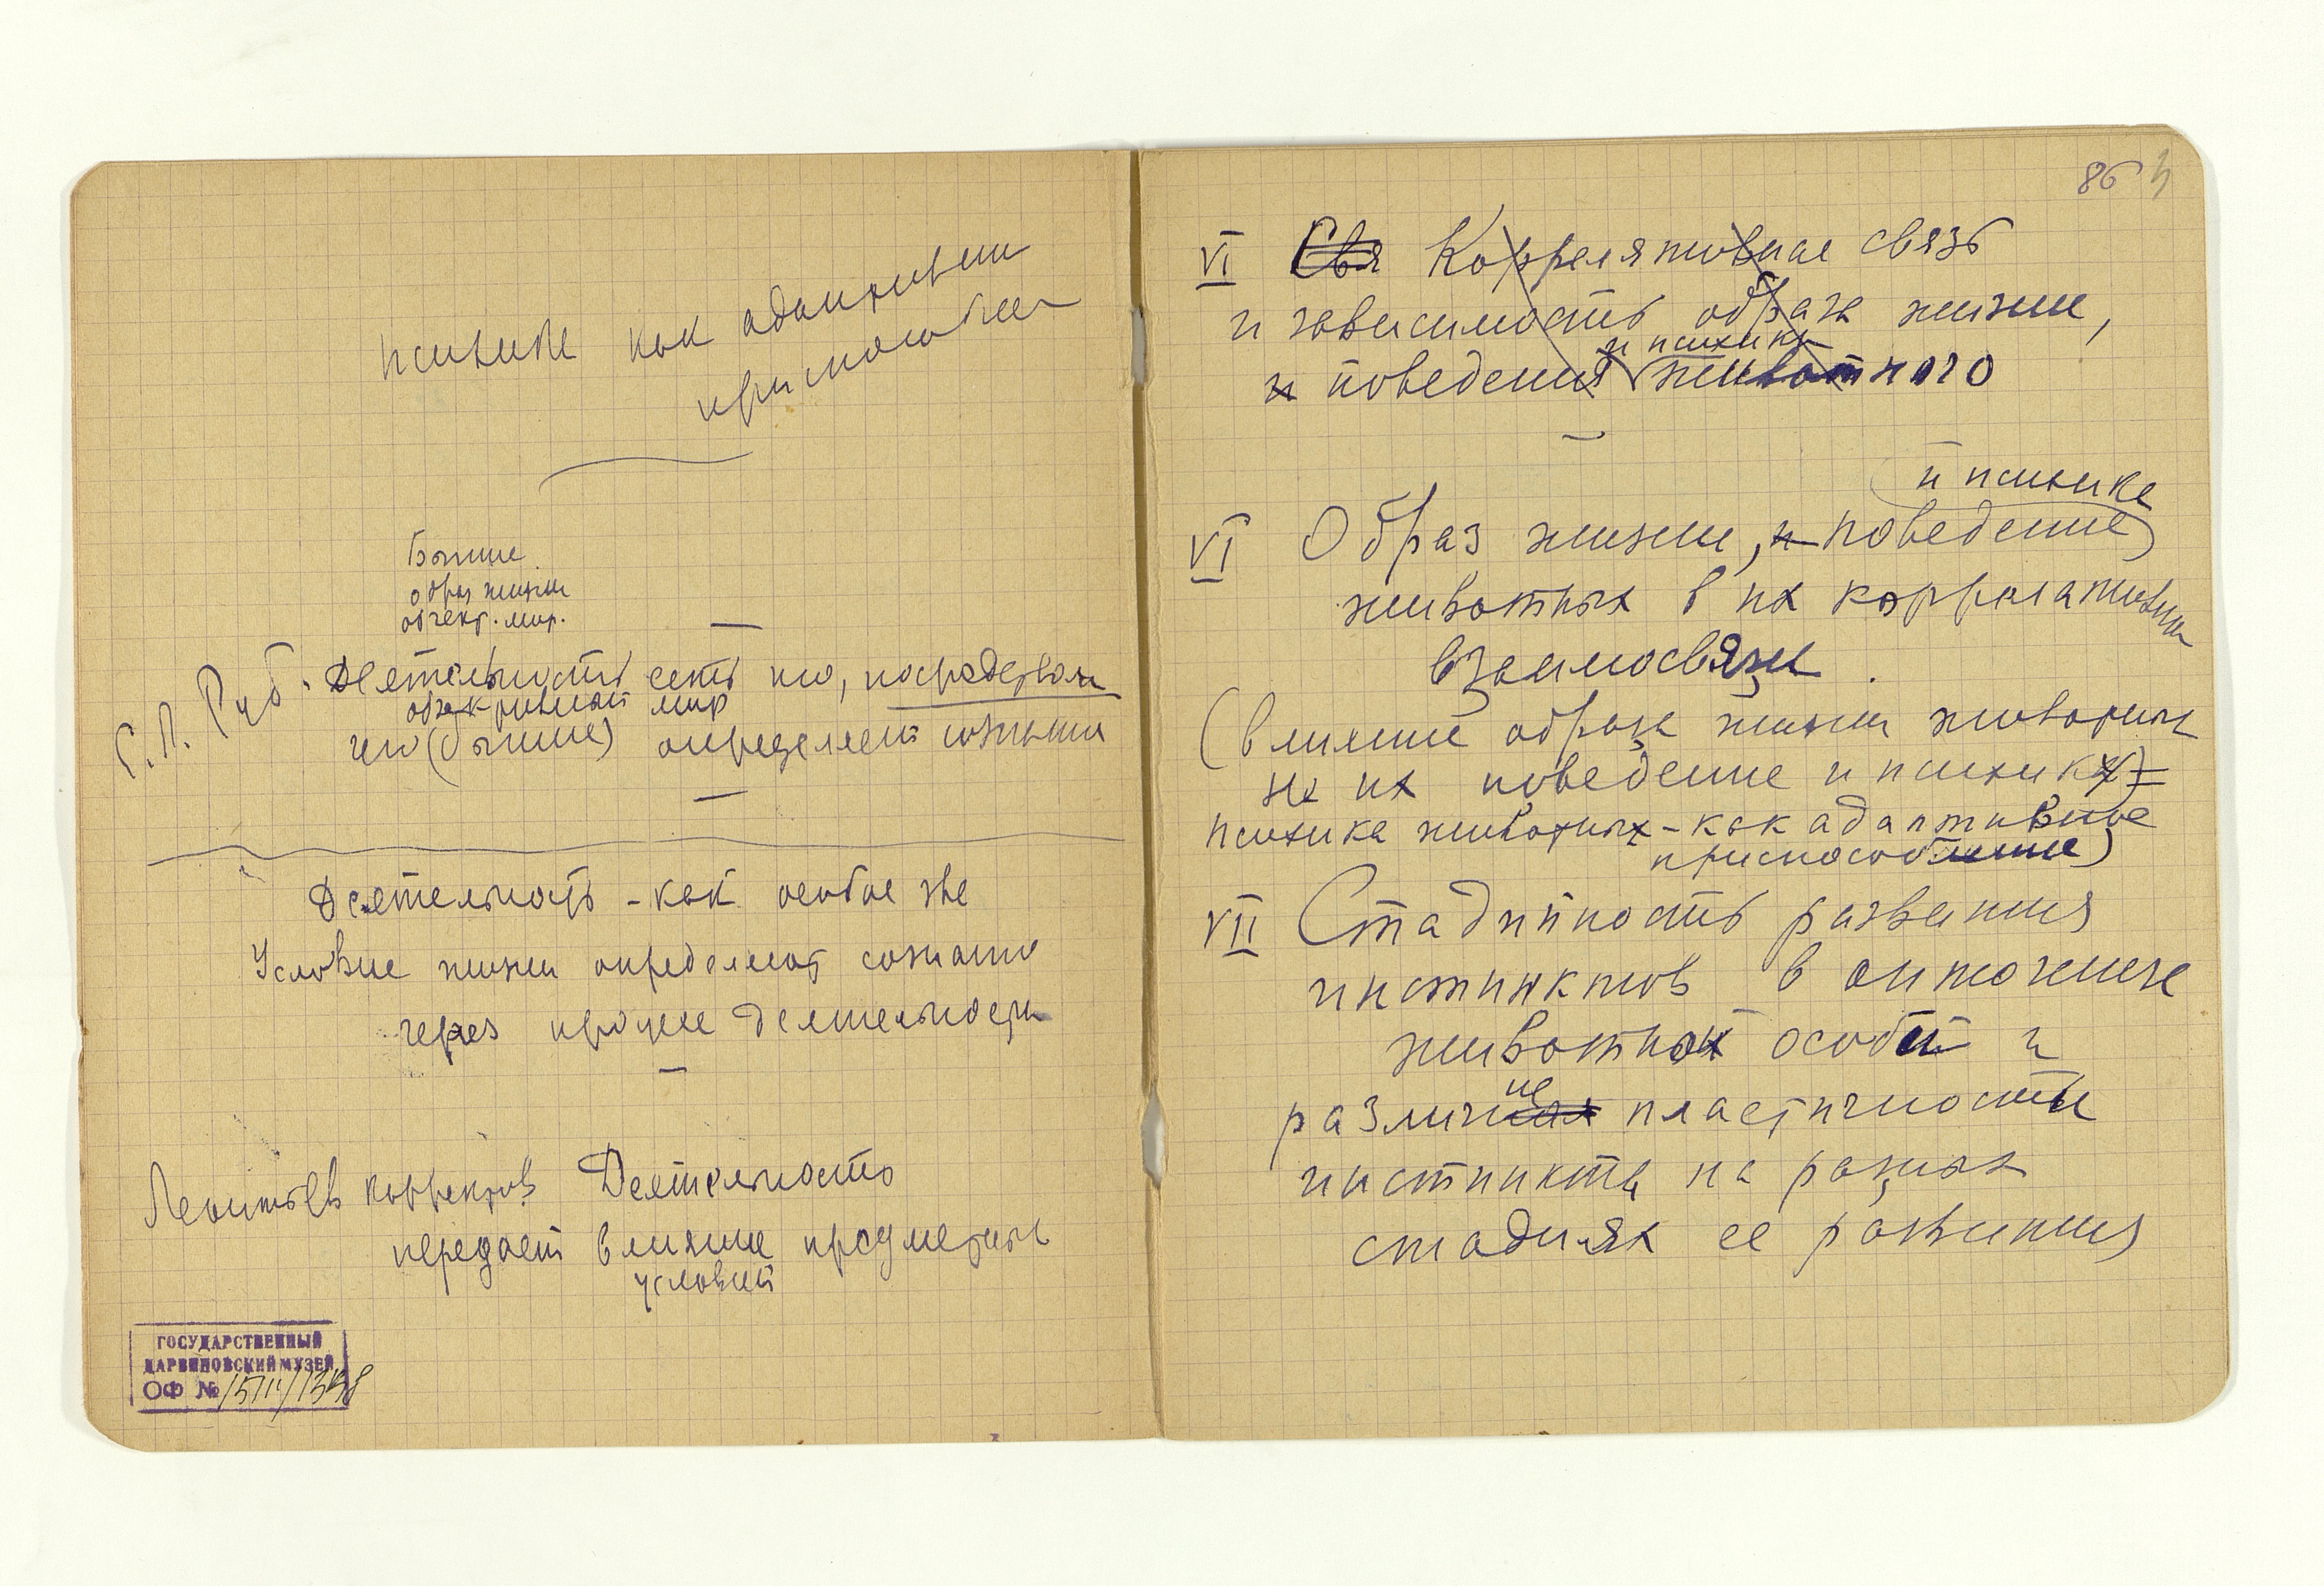 психика как адаптивн
приспособлен
Бытие
образ жизни
объект. мир.
С. Л. Руб. Деятельность есть то, посредством
объективный мир
чего (бытие) определяет сознание
Деятельность - как особое
Условие жизни определяют сознание
через процесс деятельности
Леонтьев корректив Деятельность
передает влияние предметных
условий
ГОСУДАРСТВЕННЫЙ
ДАРВИНОВСКИЙ МУЗЕЙ
ОФ №
86
VI Свя Коррелятивная связь
и зависимость образа жизни,
и психики
и поведения животного
и психика
VI Образ жизни, и поведение
животных в их коррелативной
взаимосвязи.
(влияние образа жизни животных
на их поведение и психику) =
психика животных - как адаптивное
приспособление)
VII Стадийность развития
инстинктов в онтогенезе
животной особи и
различие пластичности
инстинкта на разных
стадиях ее развития